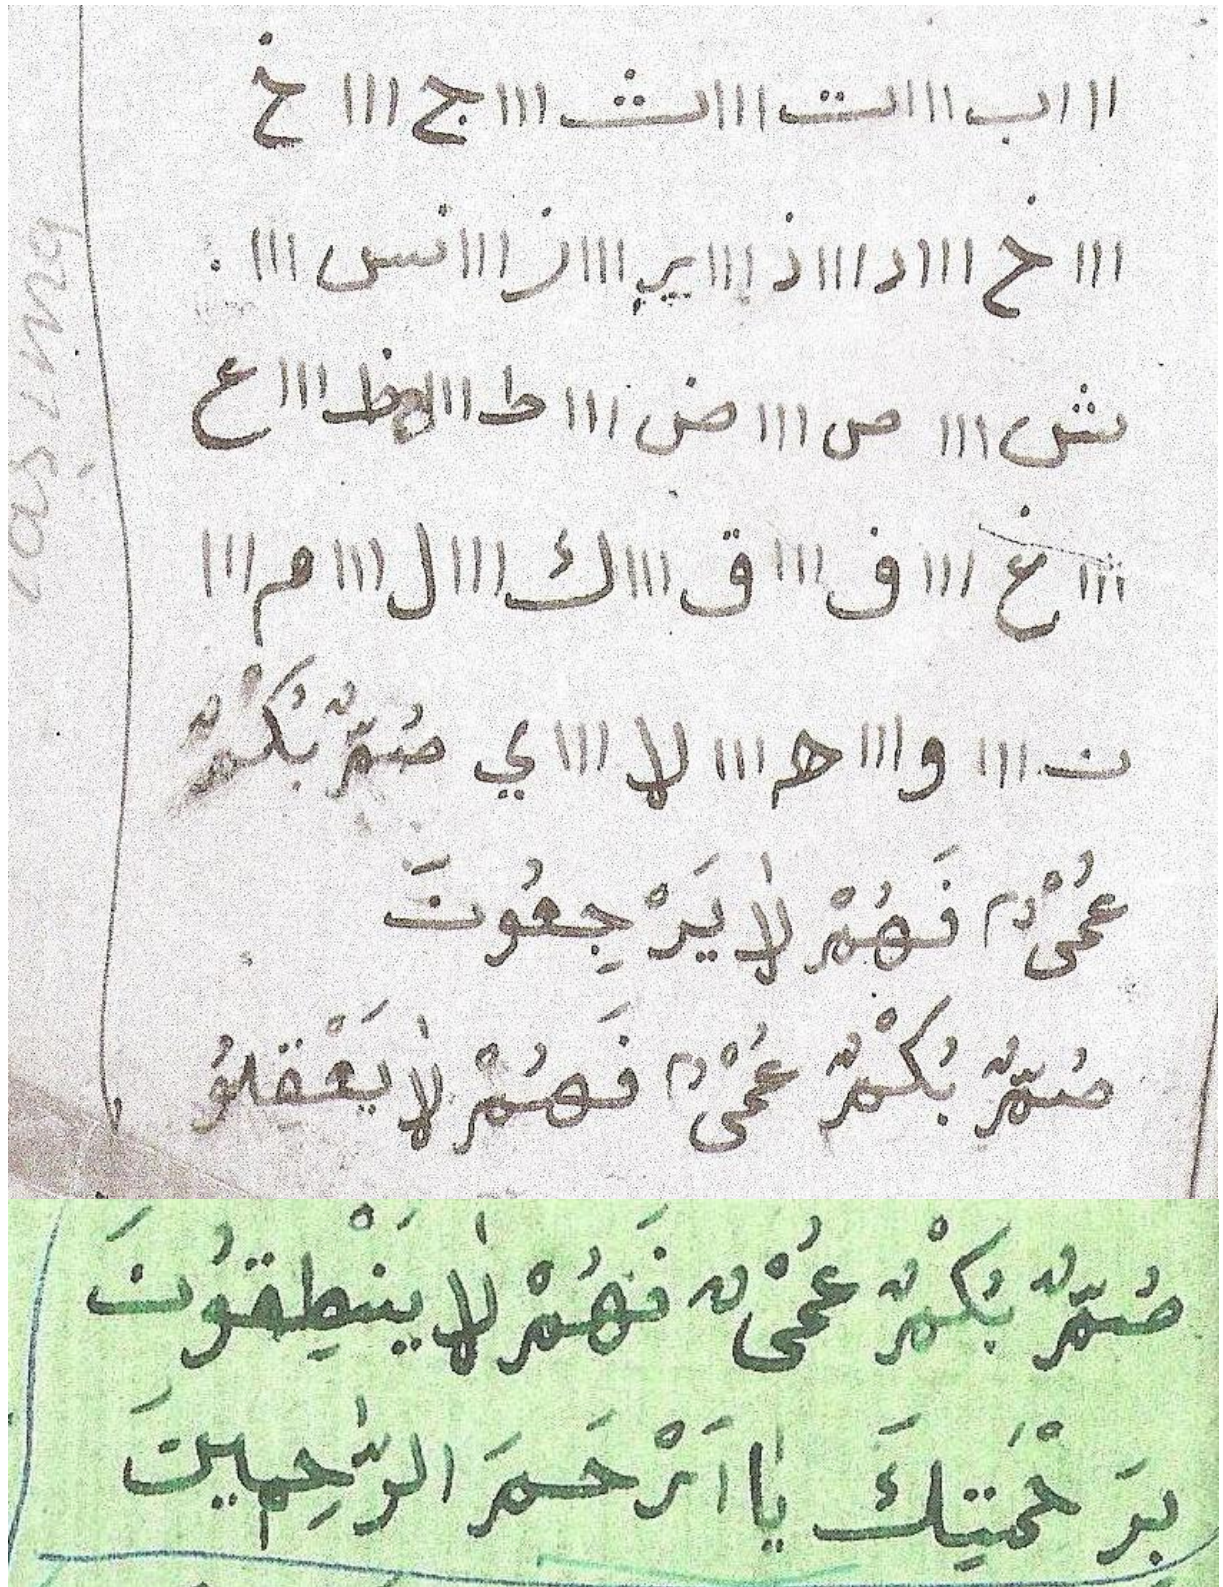 ااا ب ااا ت ااا ث ااا ج ااا خ
ااا خ ااا د ااا ذ ااا ير ااا ز ااا نس ااا
ش ااا ص ااا ض ااا ط ااا ظ ااا ع
ااا غ ااا ف ااا ق ااا ك ااا ل ااا م ااا
ن ااا و ااا ه ااا لا ااا ي صُمٌّ بُكْمٌ
عُمْىٌ فَهُمْ لَا يَرْجِعُونَ
صُمٌّ بُكْمٌ عُمْىٌ فَهُمْ لَا يَعْقلوُ
صُمٌّ بُكْمٌ عُمْىٌ فَهُمْ لَا يَنْطِقُونَ
بِرَحْمَتِكَ يَا اَرْحَمَ الرَّحِمِينَ